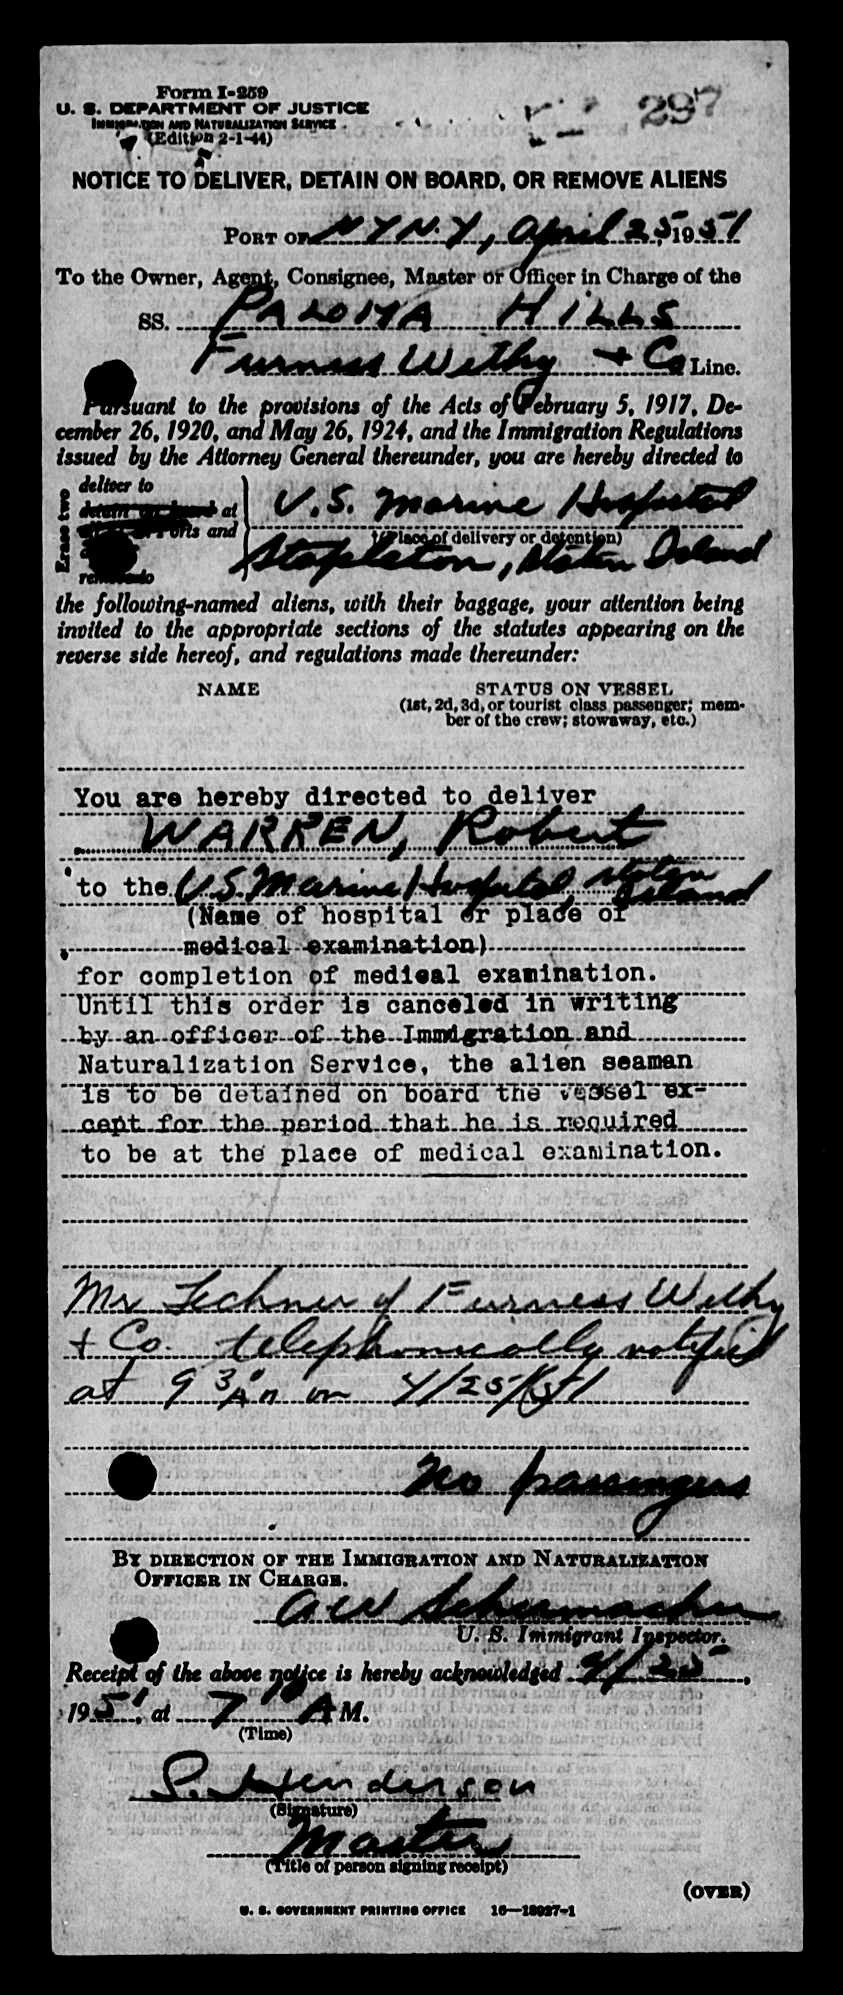 Form I-259
U. S. DEPARTMENT OF JUSTICE
IMMIGRATION AND NATURALIZATION SERVICE
(Edition 2-1-44)
297
NOTICE TO DELIVER, DETAIN ON BOARD, OR REMOVE ALIENS
PORT OF N Y N.Y, April 25, 1951
To the Owner, Agent, Consignee, Master or Officer in Charge of the
SS. PALOMA HILLS
Furness Withy + Co Line.
Pursuant to the provisions of the Acts of February 5, 1917, De-
cember 26, 1920, and May 26, 1924, and the Immigration Regulations
issued by the Attorney General thereunder, you are hereby directed to
Erase two
deliver to
detain on board at
U.S. Marine Hospital
and
(Place of delivery or detention)
Stapleton, Staten Island
the following-named aliens, with their baggage, your attention being
invited to the appropriate sections of the statutes appearing on the
reverse side hereof, and regulations made thereunder:
NAME STATUS ON VESSEL
(1st, 2d, 3d, or tourist class passenger; mem-
ber of the crew; stowaway, etc.)
You are hereby directed to deliver
WARREN, Robert
to the U.S. Marine Hospital, Staten Island
(Name of hospital or place of
medical examination)
for completion of medical examination.
Until this order is canceled in writing
by an officer of the Immigration and
Naturalization Service, the alien seaman
is to be detained on board the vessel ex-
cept for the period that he is required
to be at the place of medical examination.
Mr Lechner of Furness Withy
+ Co. telephonically notified
at 9 30 AM on 4/25/51
No passengers
BY DIRECTION OF THE IMMIGRATION AND NATURALIZATION
OFFICER IN CHARGE.
A W Schumacher
U. S. Immigrant Inspector.
Receipt of the above notice is hereby acknowledged 4/25,
1951, at 7 10 A M.
(Time)
S. Henderson
(Signature)
Master
(Title of person signing receipt)
(OVER)
U. S. GOVERNMENT PRINTING OFFICE 16—18027-1